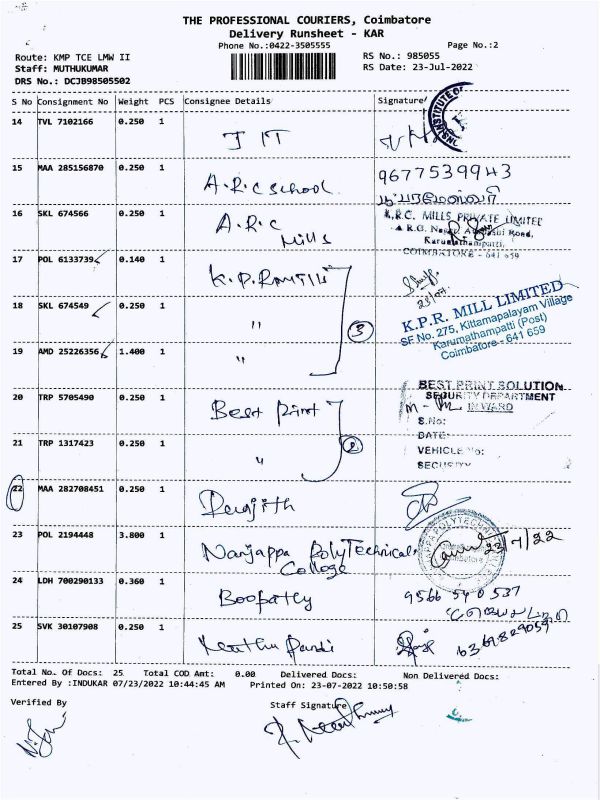 THE PROFESSIONAL COURIERS, Coimbatore
Delivery Runsheet - KAR
Phone No.:0422-3505555 Page No.:2
Route: KMP TCE LMW II RS No.: 985055
Staff: MUTHUKUMAR RS Date: 23-Jul-2022
DRS No.: DCJB98505502
S No Consignment No Weight PCS Consignee Details Signature
14 TVL 7102166 0.250 1
15 MAA 285156870 0.250 1 A.R.C School 9677539943
16 SKL 674566 0.250 1 A.R.C Mills
A.R.C. MILLS PRIVATE LIMITED
Karumathampatti,
COIMBATORE - 641 659
17 POL 6133739 0.140 1 K.P.R Mill
18 SKL 674549 0.250 1 " 3
K.P.R. MILL LIMITED
SF No. 275, Kittampalayam Village
Karumathampatti (Post)
Coimbatore - 641 659
19 AMD 25226356 1.400 1 "
20 TRP 5705490 0.250 1 Best Print
BEST PRINT SOLUTION
SECURITY DEPARTMENT
INWARD
S.No:
DATE:
VEHICLE No:
SECURITY
21 TRP 1317423 0.250 1 " 2
22 MAA 282708451 0.250 1
23 POL 2194448 3.800 1 Nanjappa PolyTechnical College 23/7/22
24 LDH 700290133 0.360 1 Boopathy 9566540537
25 SVK 30107908 0.250 1
Total No. Of Docs: 25 Total COD Amt: 0.00 Delivered Docs: Non Delivered Docs:
Entered By :INDUKAR 07/23/2022 10:44:45 AM Printed On: 23-07-2022 10:50:58
Verified By Staff Signature